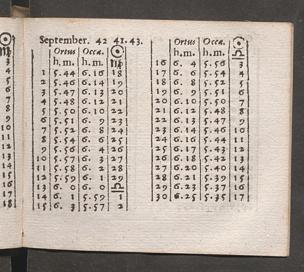 September. 42 41. 43.
Ortus Occa. ☉
h. m. h. m. ♍
1 5.44 6.16 18
2 5.45 6.15 19
3 5.47 6.13 20
4 5.48 6.12 21
5 5.50 6.10 22
6 5.51 6. 9 23
7 5.52 6. 8 24
8 5.54 6. 6 25
9 5.56 6. 4 26
10 5.57 6. 3 27
11 5.58 6. 2 28
12 5.59 6. 1 29
13 6. 0 6. 0 ♎
14 6. 1 5.59 1
15 6. 3 5.57 2
Ortus Occa. ☉
h. m. h. m. ♎
16 6. 4 5.56 3
17 6. 6 5.54 4
18 6. 8 5.52 5
19 6. 9 5.51 6
20 6.10 5.50 7
21 6.12 5.48 8
22 6.13 5.47 9
23 6.14 5.46 10
24 6.16 5.44 11
25 6.17 5.43 12
26 6.18 5.42 13
27 6.20 5.40 14
28 6.21 5.39 15
29 6.23 5.37 16
30 6.25 5.35 17